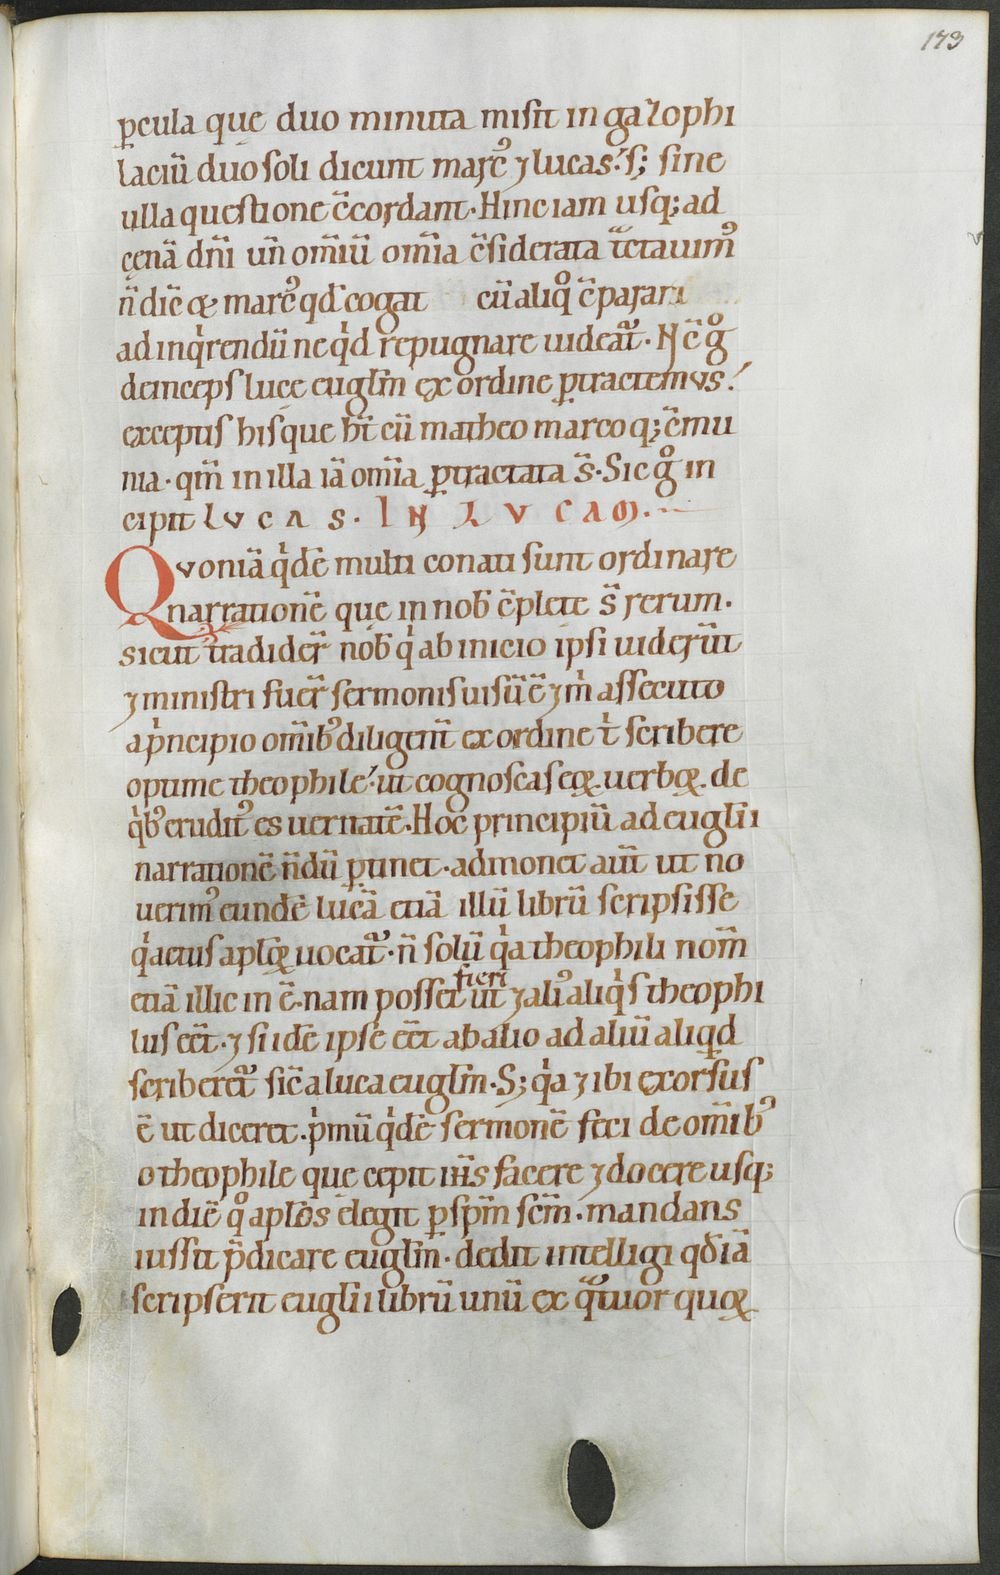 173
ꝑcula quę duo minuta misit in gazophi
laciū duo soli dicunt marcꝰ ⁊ lucas. s; sine
ulla questione c̄cordant. Hinc iam usq; ad
cęnā dn̄i un̄ om̄iū om̄ia c̄siderata t̄ctauimꝰ
n̄ diē & marcꝰ qđ cogat cū aliqͦ c̄parari
ad inqͥrendū ne qͥd repugnare uideat̄. Nc̄ gͦ
deinceps luce eugłm ex ordine ꝑtractemus.
exceptis his que ht̄ cū matheo marco q; c̄mu
nia. qm̄ in illa iā om̄ia ꝑtractata s̄. Sic gͦ in
cipit LUCAS. IN LUCAM.
Quoniā qͥdē multi conati sunt ordinare
narrationē quę in nob̄ c̄plete s̄ rerum.
sicut tradider̄ nob̄ qͥ ab inicio ipsi uiderūt
⁊ ministri fuer̄ sermonis uisū ē ⁊ mͥ assecuto
a pͥncipio om̄ibꝰ diligent̄ ex ordine tͥ scribere
optime theophile. ut cognoscas eoꝝ uerboꝝ de
qͥbꝰ eruditꝰ es ueritatē. Hoc principiū ad eugłii
narrationē n̄dū ꝑtinet. admonet aut̄ ut no
uerimꝰ eundē lucā etiā illū librū scripsisse
qͥ actus apłoꝝ uocat̄. n̄ solū qͥa theophili nom̄
etiā illic in ē. nam posset fieri ut ⁊ aliꝰ aliqͥs theophi
lus eēt. ⁊ si idē ipse eēt ab alio ad aliū aliqͥd
scriberet̄ sic̄ a luca eugłm. S; qͥa ⁊ ibi exorsus
ē ut diceret. pͥmū qͥdē sermonē feci de om̄ibꝰ
o theophile quę cepit ih̄s facere ⁊ docere usq;
in diē qͦ apłos elegit ꝑ spm̄ scm̄. mandans
iussit p̄dicare eugłm. dedit intelligi qđ iā
scripserit eugłii librū unū ex qͣttuor quoꝝ